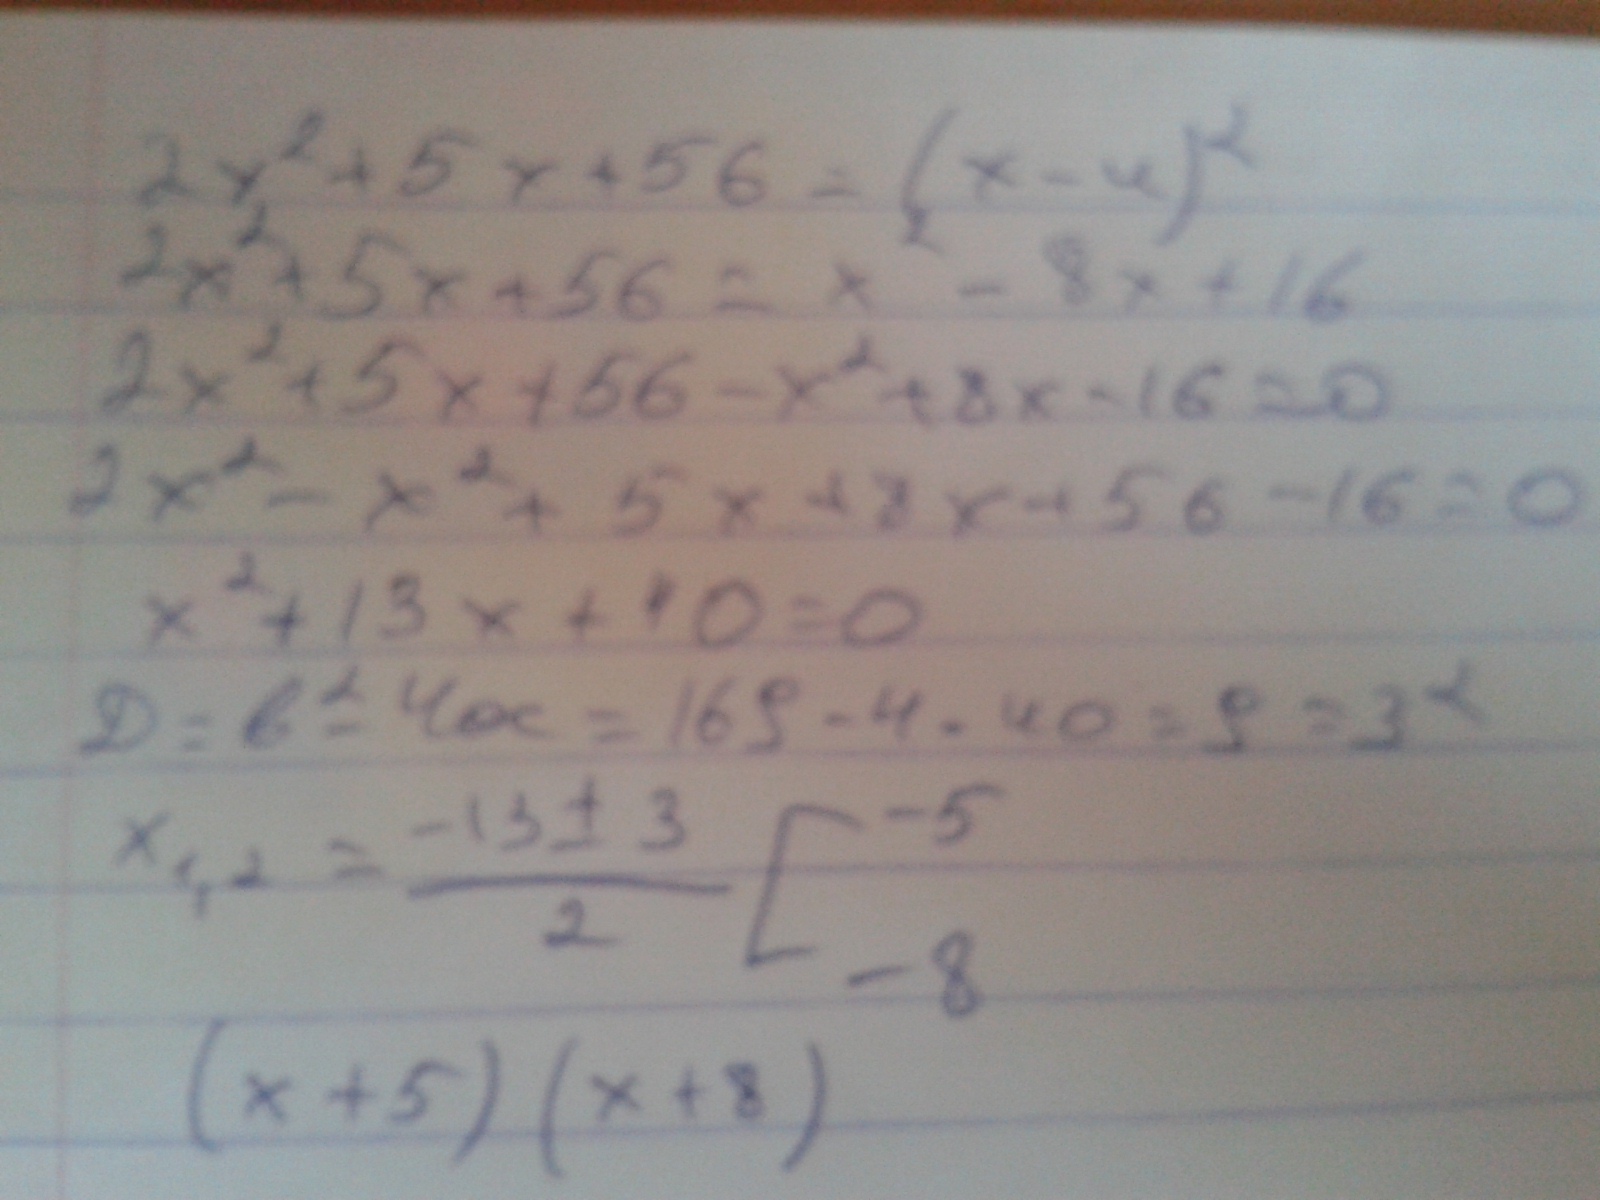 2x² + 5x + 56 = (x - 4)²
2x² + 5x + 56 = x² - 8x + 16
2x² + 5x + 56 - x² + 8x - 16 = 0
2x² - x² + 5x + 8x + 56 - 16 = 0
x² + 13x + 40 = 0
D = b² - 4ac = 169 - 4 · 40 = 9 = 3²
x₁,₂ = (-13 ± 3)/2 [ -5
-8
(x + 5)(x + 8)